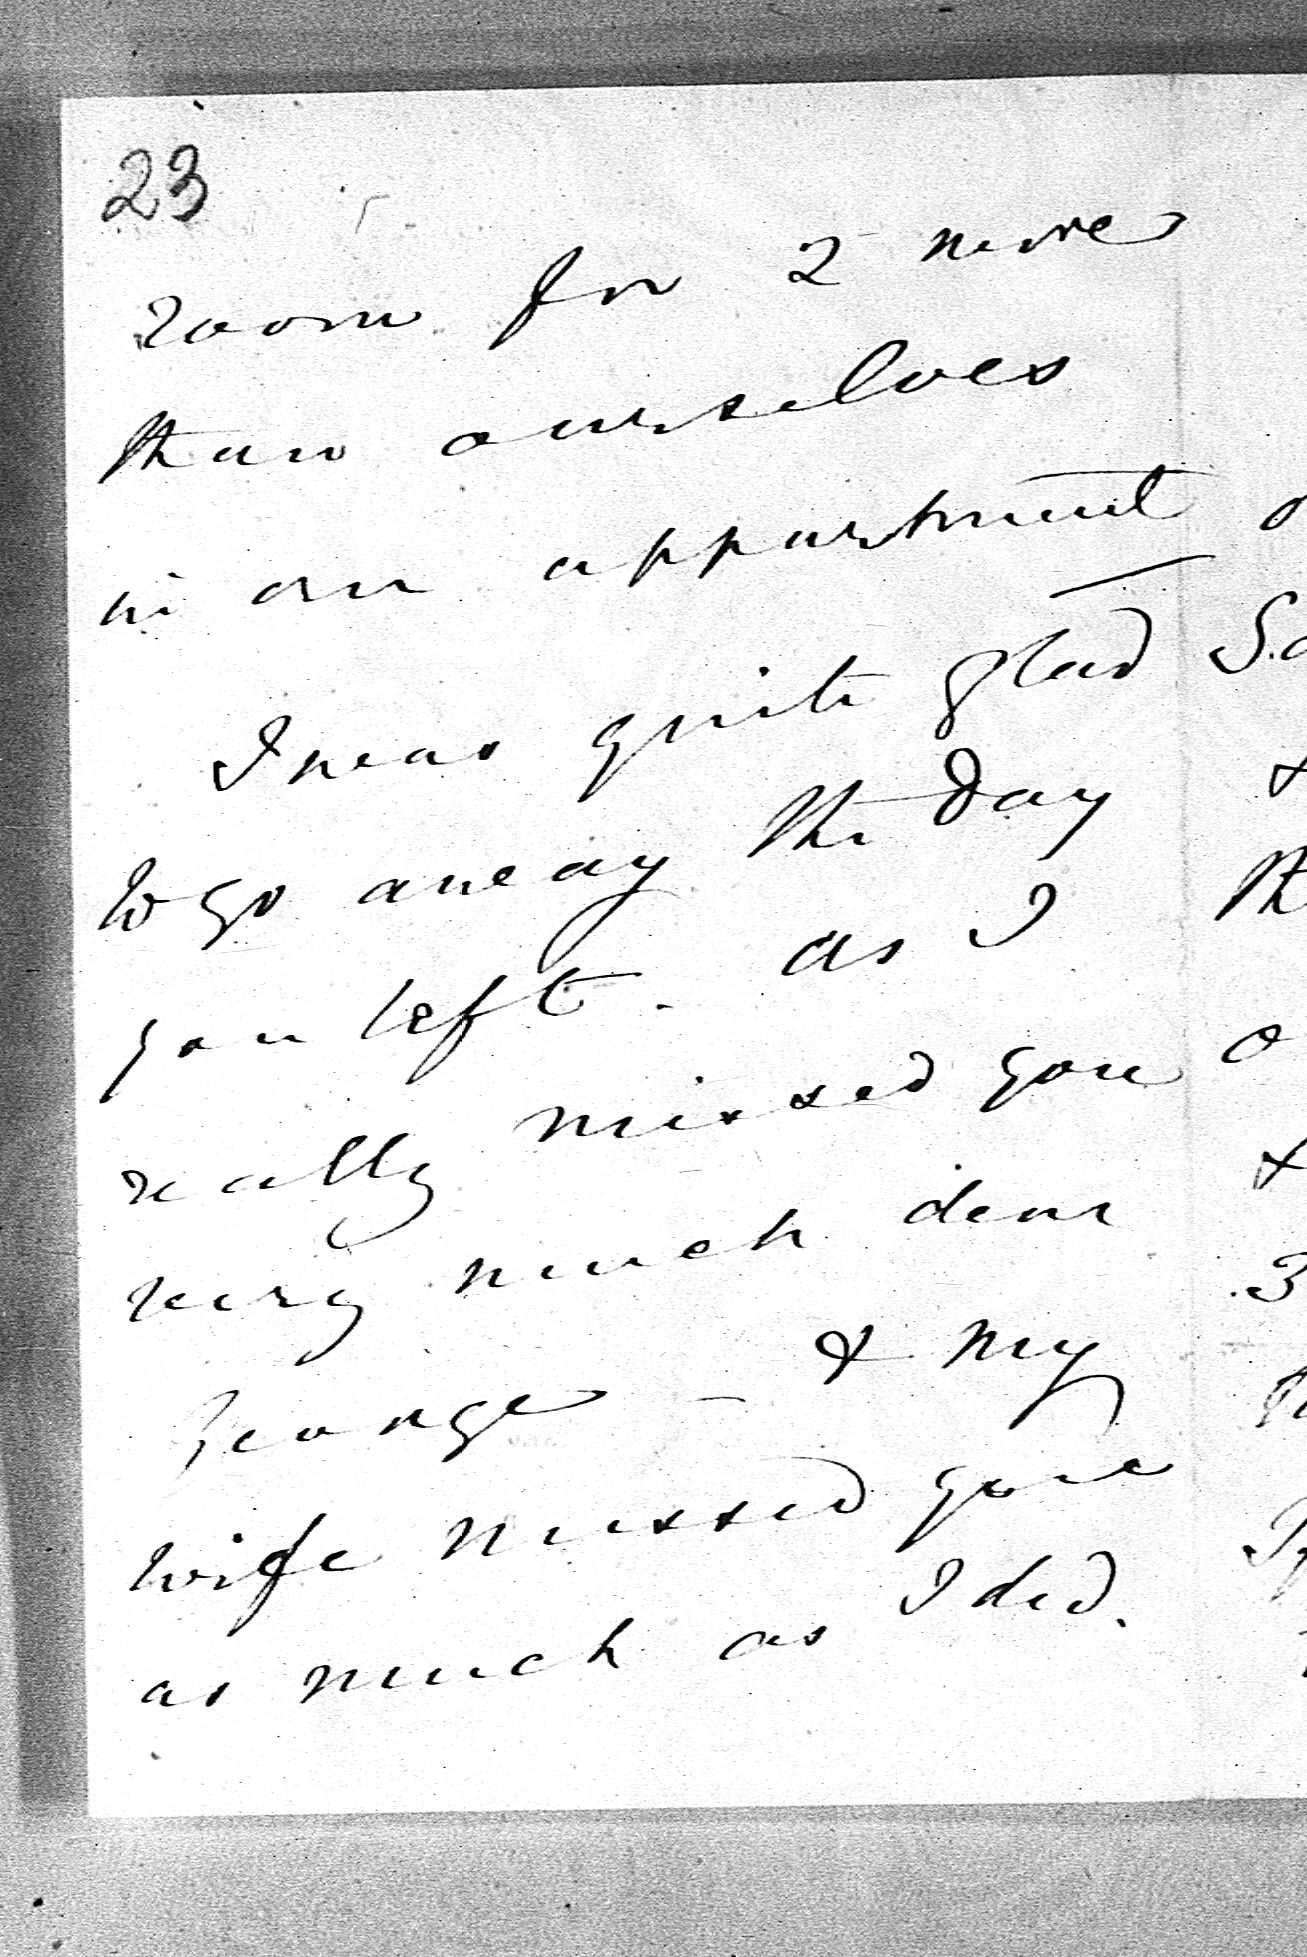 23
room for 2 more
than ourselves
in an appartment
I was quite glad
to go away the day
you left. as I
really missed you
very much dear
George - & my
wife missed you
as much as I did.